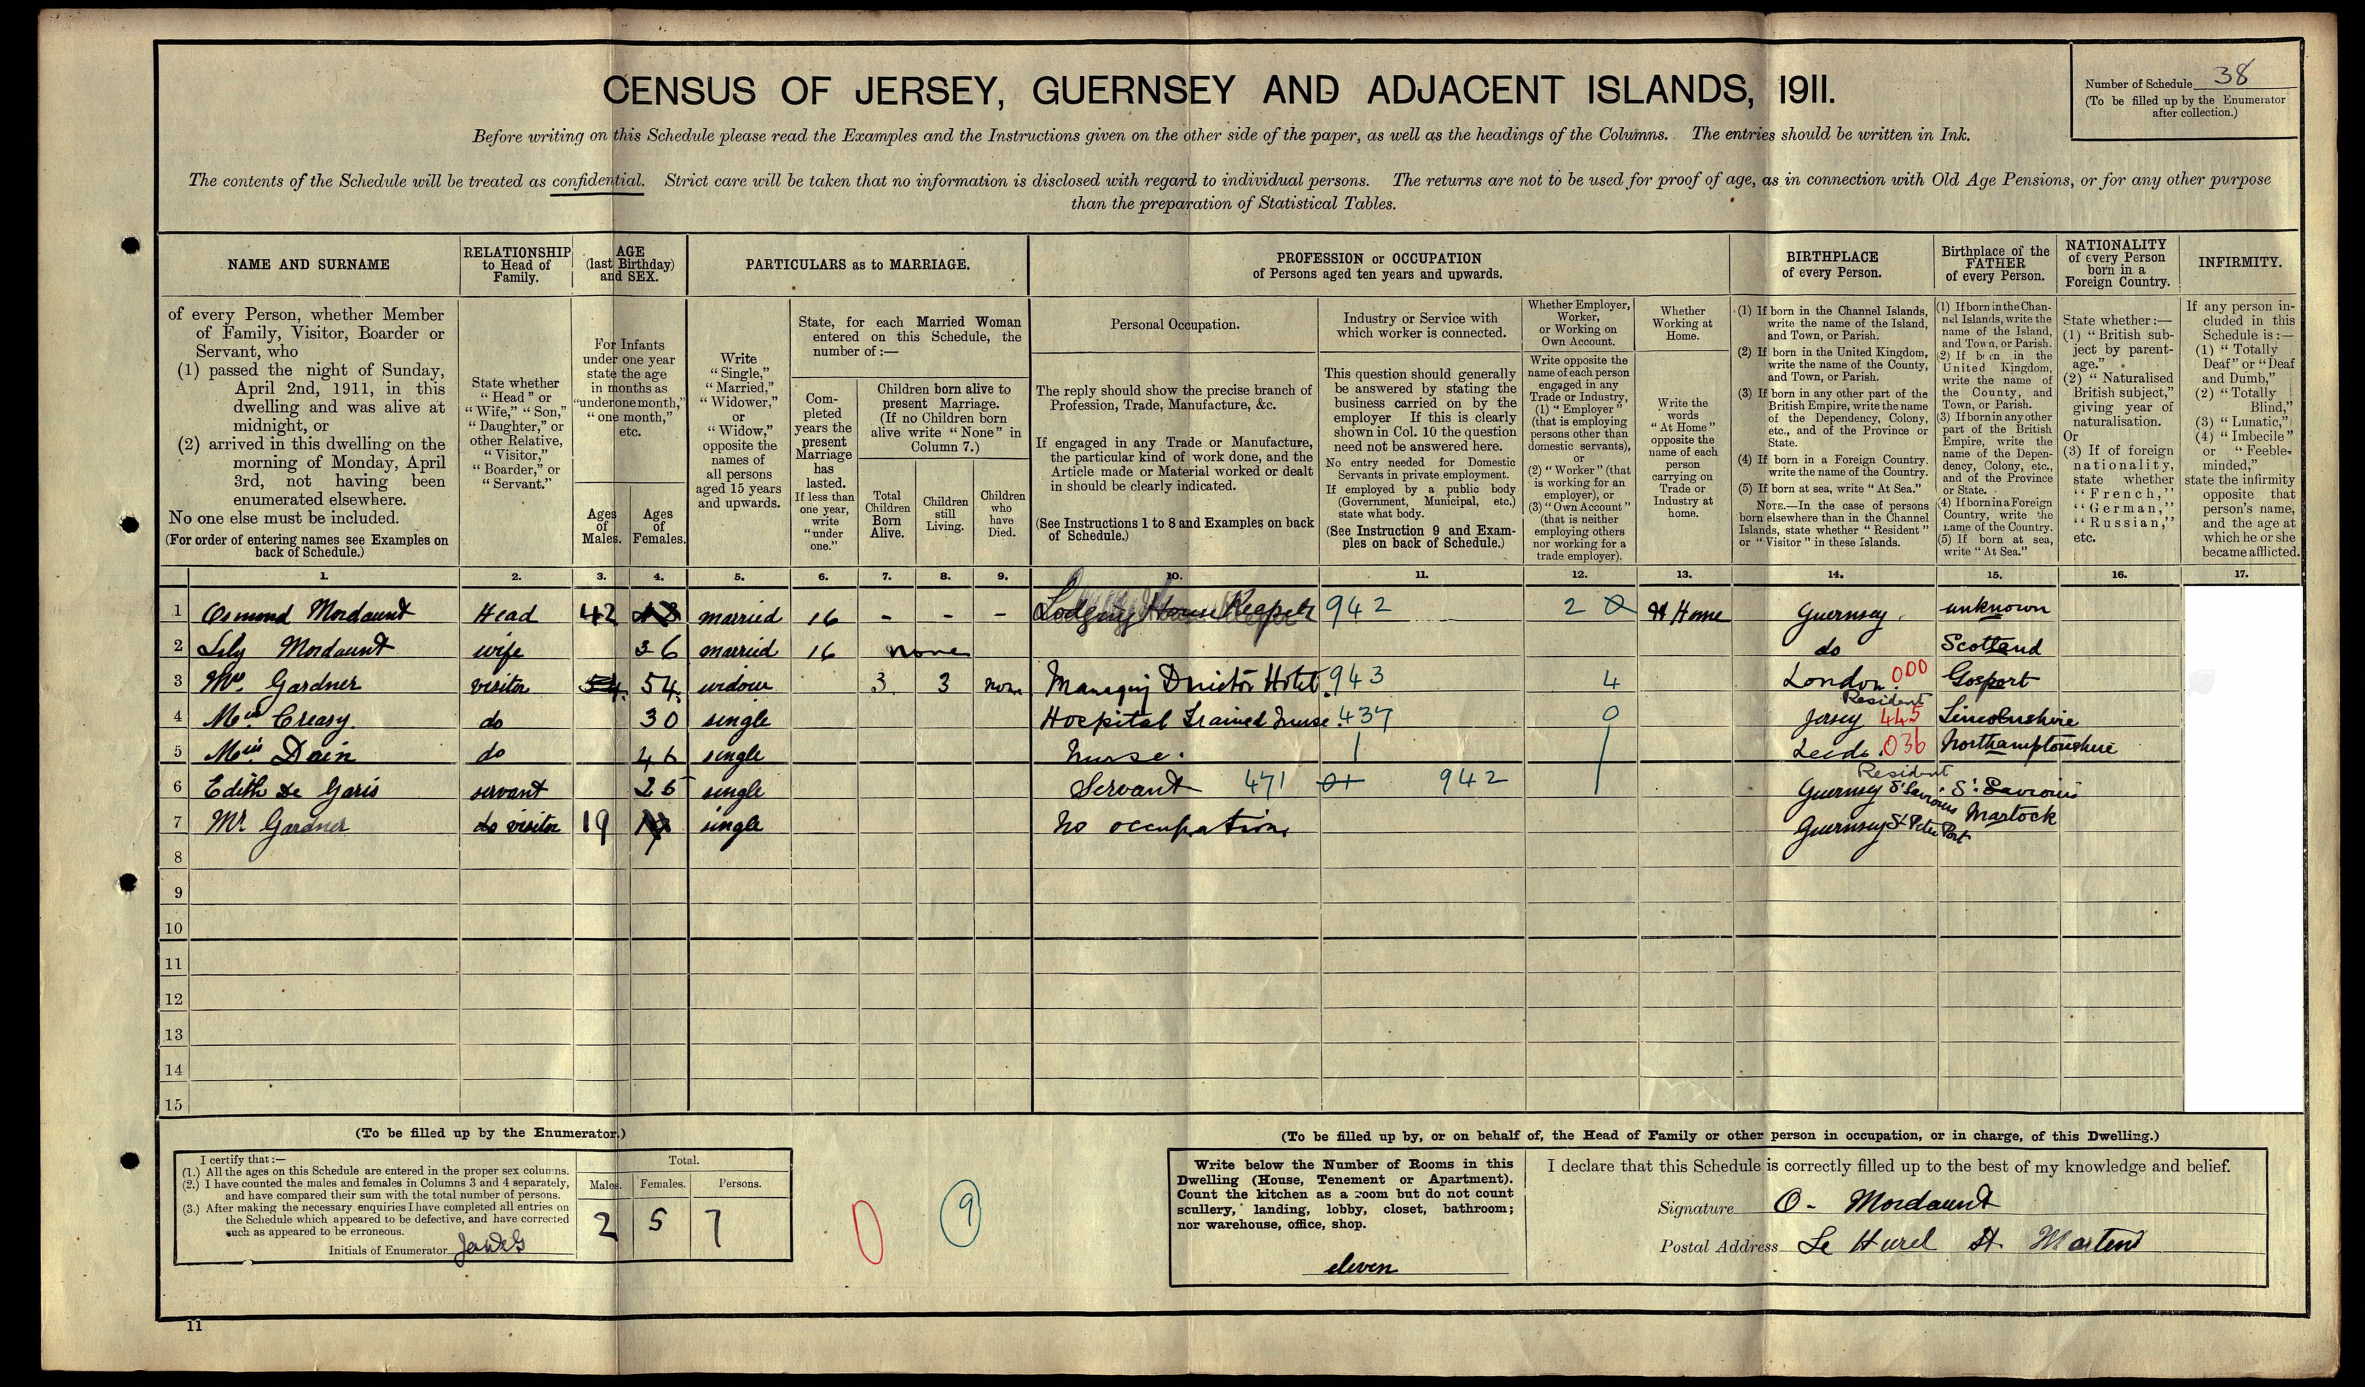 CENSUS OF JERSEY, GUERNSEY AND ADJACENT ISLANDS, 1911.
Number of Schedule 38
(To be filled up by the Enumerator
after collection.)
Before writing on this Schedule please read the Examples and the Instructions given on the other side of the paper, as well as the headings of the Columns. The entries should be written in Ink.
The contents of the Schedule will be treated as confidential. Strict care will be taken that no information is disclosed with regard to individual persons. The returns are not to be used for proof of age, as in connection with Old Age Pensions, or for any other purpose
than the preparation of Statistical Tables.
NAME AND SURNAME
of every Person, whether Member
of Family, Visitor, Boarder or
Servant, who
(1) passed the night of Sunday,
April 2nd, 1911, in this
dwelling and was alive at
midnight, or
(2) arrived in this dwelling on the
morning of Monday, April
3rd, not having been
enumerated elsewhere.
No one else must be included.
(For order of entering names see Examples on
back of Schedule.)
RELATIONSHIP
to Head of
Family.
State whether
"Head" or
"Wife," "Son,"
"Daughter," or
other Relative,
"Visitor,"
"Boarder," or
"Servant."
AGE
(last Birthday)
and SEX.
For Infants
under one year
state the age
in months as
"under one month,"
"one month,"
etc.
Ages
of
Males.
Ages
of
Females.
PARTICULARS as to MARRIAGE.
Write
"Single,"
"Married,"
"Widower,"
or
"Widow,"
opposite the
names of
all persons
aged 15 years
and upwards.
State, for each Married Woman
entered on this Schedule, the
number of :—
Com-
pleted
years the
present
Marriage
has
lasted.
If less than
one year,
write
"under
one."
Children born alive to
present Marriage.
(If no Children born
alive write "None" in
Column 7.)
Total
Children
Born
Alive.
Children
still
Living.
Children
who
have
Died.
PROFESSION or OCCUPATION
of Persons aged ten years and upwards.
Personal Occupation.
The reply should show the precise branch of
Profession, Trade, Manufacture, &c.
If engaged in any Trade or Manufacture,
the particular kind of work done, and the
Article made or Material worked or dealt
in should be clearly indicated.
(See Instructions 1 to 8 and Examples on back
of Schedule.)
Industry or Service with
which worker is connected.
This question should generally
be answered by stating the
business carried on by the
employer If this is clearly
shown in Col. 10 the question
need not be answered here.
No entry needed for Domestic
Servants in private employment.
If employed by a public body
(Government, Municipal, etc.)
state what body.
(See Instruction 9 and Exam-
ples on back of Schedule.)
Whether Employer,
Worker,
or Working on
Own Account.
Write opposite the
name of each person
engaged in any
Trade or Industry,
(1) "Employer"
(that is employing
persons other than
domestic servants),
or
(2) "Worker" (that
is working for an
employer), or
(3) "Own Account"
(that is neither
employing others
nor working for a
trade employer).
Whether
Working at
Home.
Write the
words
"At Home"
opposite the
name of each
person
carrying on
Trade or
Industry at
home.
BIRTHPLACE
of every Person.
(1) If born in the Channel Islands,
write the name of the Island,
and Town, or Parish.
(2) If born in the United Kingdom,
write the name of the County,
and Town, or Parish.
(3) If born in any other part of the
British Empire, write the name
of the Dependency, Colony,
etc., and of the Province or
State.
(4) If born in a Foreign Country.
write the name of the Country.
(5) If born at sea, write "At Sea."
NOTE.—In the case of persons
born elsewhere than in the Channel
Islands, state whether "Resident"
or "Visitor" in these Islands.
Birthplace of the
FATHER
of every Person.
(1) If born in the Chan-
nel Islands, write the
name of the Island,
and Town, or Parish.
(2) If born in the
United Kingdom,
write the name of
the County, and
Town, or Parish.
(3) If born in any other
part of the British
Empire, write the
name of the Depen-
dency, Colony, etc.,
and of the Province
or State.
(4) If born in a Foreign
Country, write the
name of the Country.
(5) If born at sea,
write "At Sea."
NATIONALITY
of every Person
born in a
Foreign Country.
State whether :—
(1) "British sub-
ject by parent-
age."
(2) "Naturalised
British subject,"
giving year of
naturalisation.
Or
(3) If of foreign
nationality,
state whether
"French,"
"German,"
"Russian,"
etc.
INFIRMITY.
If any person in-
cluded in this
Schedule is :—
(1) "Totally
Deaf" or "Deaf
and Dumb,"
(2) "Totally
Blind,"
(3) "Lunatic,"
(4) "Imbecile"
or "Feeble-
minded,"
state the infirmity
opposite that
person's name,
and the age at
which he or she
became afflicted.
1. 2. 3. 4. 5. 6. 7. 8. 9. 10. 11. 12. 13. 14. 15. 16. 17.
1 Osmond Mordaunt Head 42 married 16 - - - Lodging House Keeper 942 2 At Home Guernsey unknown
2 Lily Mordaunt wife 36 married 16 none do Scotland
3 Mrs Gardner visitor 54 54 widow 3 3 none Managing Director Hotel 943 4 London 000 Gosport
Resident
4 Miss Creasy do 30 single Hospital Trained Nurse 437 0 Jersey 445 Lincolnshire
5 Miss Dain do 46 single Nurse Leeds 036 Northamptonshire
Resident
6 Edith De Garis servant 25 single Servant 471 01 942 Guernsey St Saviours St Saviours
7 Mr Gardner do visitor 19 19 single No occupation Guernsey St Peter Port Martock
8
9
10
11
12
13
14
15
(To be filled up by the Enumerator.)
I certify that :—
(1.) All the ages on this Schedule are entered in the proper sex columns.
(2.) I have counted the males and females in Columns 3 and 4 separately,
and have compared their sum with the total number of persons.
(3.) After making the necessary enquiries I have completed all entries on
the Schedule which appeared to be defective, and have corrected
such as appeared to be erroneous.
Initials of Enumerator
Total.
Males. Females. Persons.
2 5 7
0 9
(To be filled up by, or on behalf of, the Head of Family or other person in occupation, or in charge, of this Dwelling.)
Write below the Number of Rooms in this
Dwelling (House, Tenement or Apartment).
Count the kitchen as a room but do not count
scullery, landing, lobby, closet, bathroom;
nor warehouse, office, shop.
eleven
I declare that this Schedule is correctly filled up to the best of my knowledge and belief.
Signature O- Mordaunt
Postal Address Le Hurel St. Martins
11